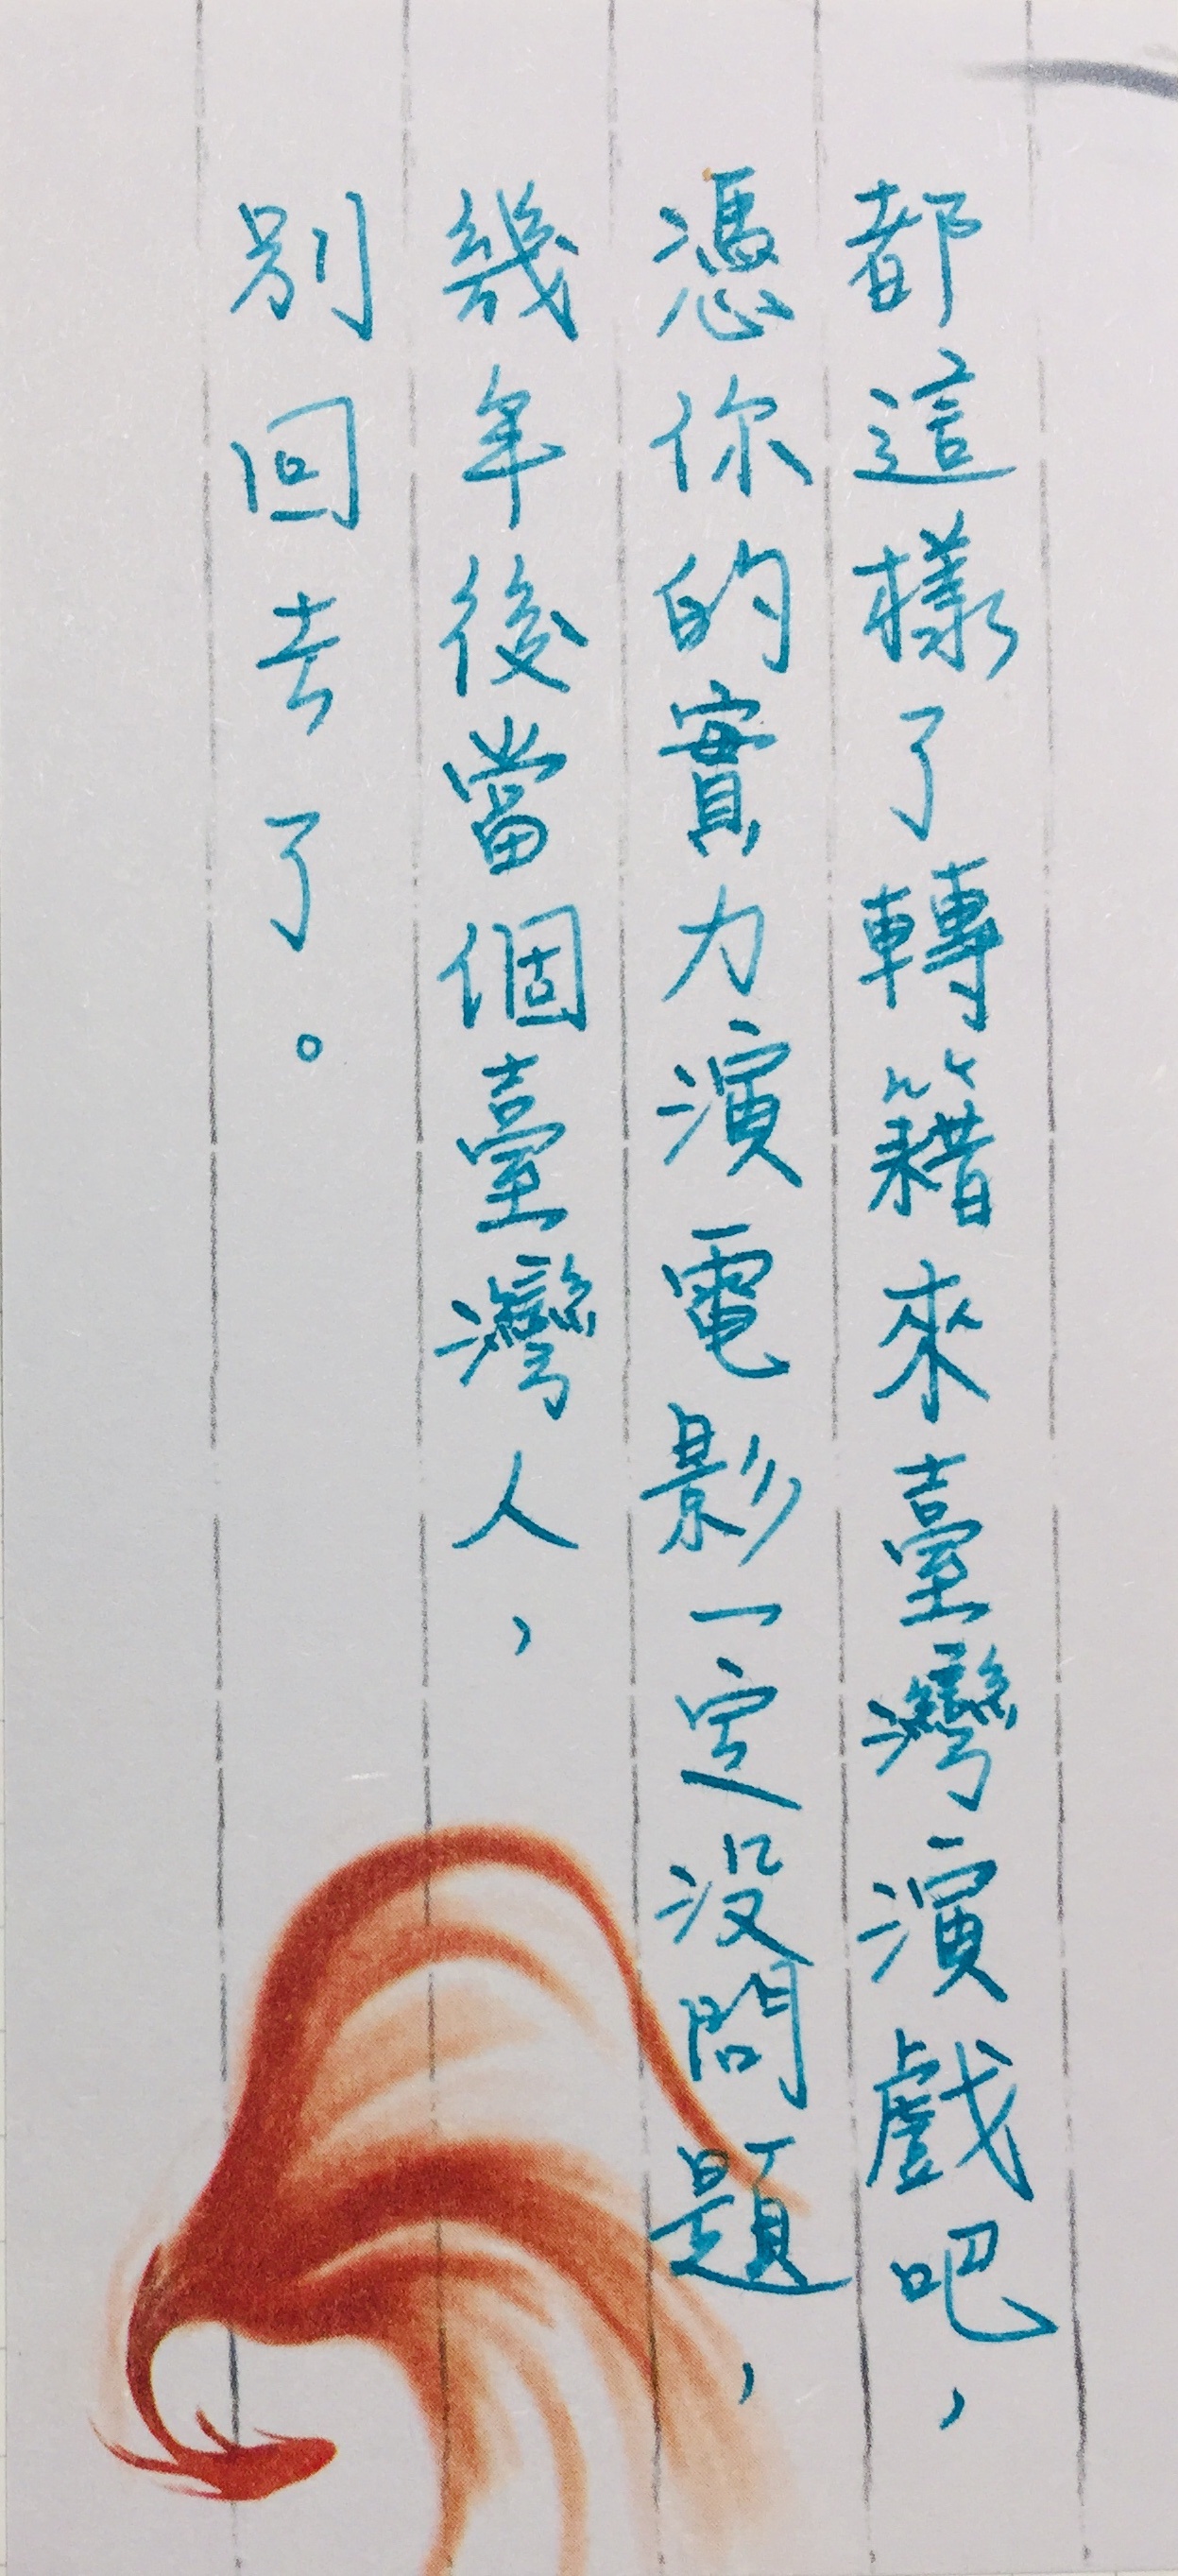 都這樣了轉籍來臺灣演戲吧，
憑你的實力演電影一定沒問題，
幾年後當個臺灣人，
別回去了。